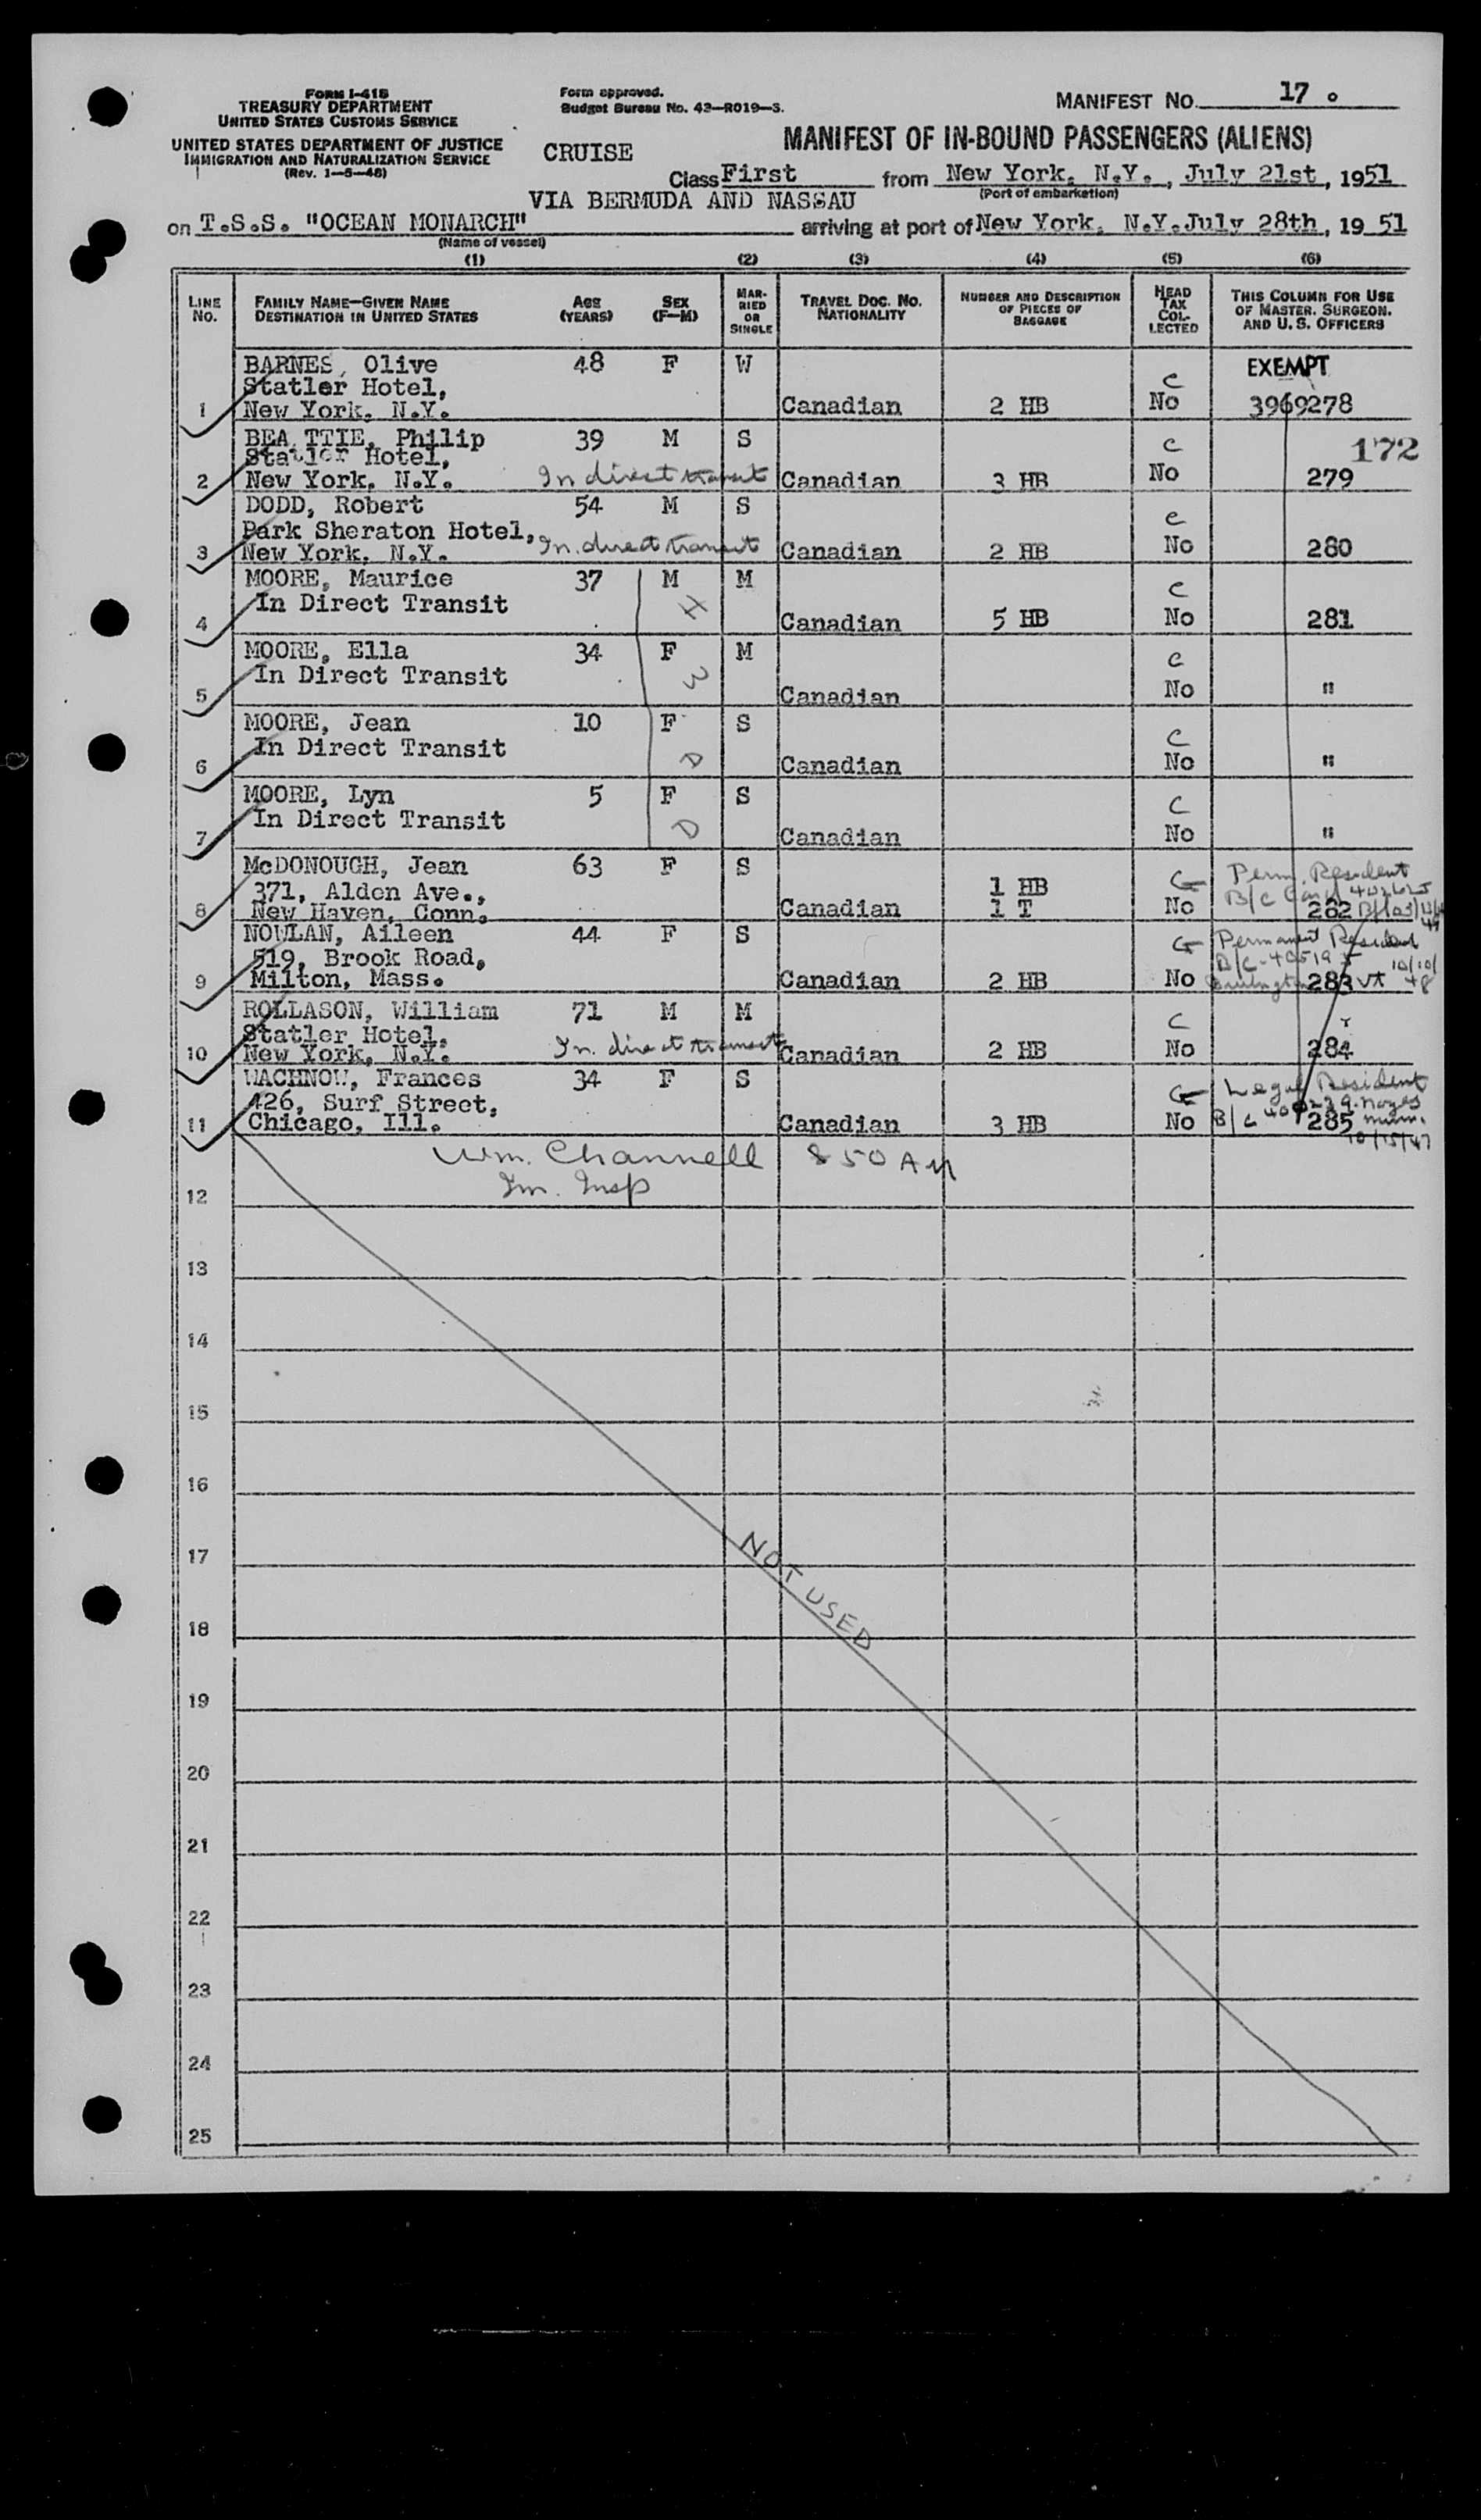 FORM I-418
TREASURY DEPARTMENT
UNITED STATES CUSTOMS SERVICE
UNITED STATES DEPARTMENT OF JUSTICE
IMMIGRATION AND NATURALIZATION SERVICE
(Rev. 1-5-48)
Form approved.
Budget Bureau No. 43-R019-3.
MANIFEST NO. 17
MANIFEST OF IN-BOUND PASSENGERS (ALIENS)
CRUISE
Class First from New York, N.Y., July 21st, 1951
(Port of embarkation)
VIA BERMUDA AND NASSAU
on T.S.S. "OCEAN MONARCH" arriving at port of New York, N.Y. July 28th, 1951
(Name of vessel)
(1) (2) (3) (4) (5) (6)
LINE NO. FAMILY NAME—GIVEN NAME DESTINATION IN UNITED STATES AGE (YEARS) SEX (F—M) MARRIED OR SINGLE TRAVEL DOC. NO. NATIONALITY NUMBER AND DESCRIPTION OF PIECES OF BAGGAGE HEAD TAX COLLECTED THIS COLUMN FOR USE OF MASTER, SURGEON, AND U. S. OFFICERS
BARNES, Olive 48 F W EXEMPT
Statler Hotel, C
1 New York, N.Y. Canadian 2 HB No 3969278
BEA TTIE, Philip 39 M S C 172
Statler Hotel,
2 New York, N.Y. In direct transit Canadian 3 HB No 279
DODD, Robert 54 M S C
Park Sheraton Hotel,
3 New York, N.Y. In direct transit Canadian 2 HB No 280
MOORE, Maurice 37 M M C
In Direct Transit H
4 Canadian 5 HB No 281
MOORE, Ella 34 F M C
In Direct Transit W
5 Canadian No "
MOORE, Jean 10 F S C
In Direct Transit D
6 Canadian No "
MOORE, Lyn 5 F S C
In Direct Transit D
7 Canadian No "
McDONOUGH, Jean 63 F S Perm. Resident
371, Alden Ave., 1 HB B/C Card
8 New Haven, Conn. Canadian 1 T No 282
NOWLAN, Aileen 44 F S Permanent Resident
519, Brook Road, B/C-405195 10/10/48
9 Milton, Mass. Canadian 2 HB No Burlington 283 Vt
ROLLASON, William 71 M M C
Statler Hotel,
10 New York, N.Y. In direct transit Canadian 2 HB No 284
WACHNOW, Frances 34 F S Legal Resident
426, Surf Street, Noyes
11 Chicago, Ill. Canadian 3 HB No B/C 285 Minn.
10/15/47
Wm. Channell 850 AM
Im. Insp
12
13
14
15
16
17
NOT USED
18
19
20
21
22
23
24
25